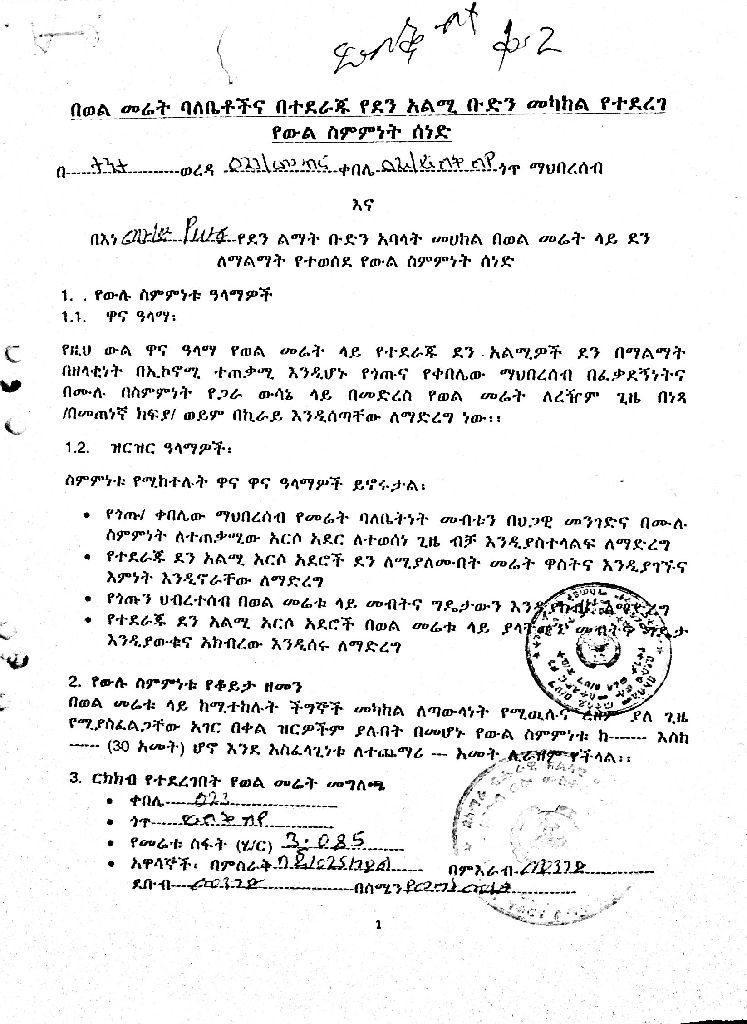 በወል መሬት ባለቤቶችና በተደራጁ የደን አልሚ ቡድን መካከል የተደረገ
የውል ስምምነት ሰነድ
በ ወረዳ 021 ቀበሌ ጎጥ ማህበረሰብ
እና
በእነ የደን ልማት ቡድን አባላት መሀከል በወል መሬት ላይ ደን
ለማልማት የተወሰደ የውል ስምምነት ሰነድ
1. . የውሉ ስምምነቱ ዓላማዎች
1.1. ዋና ዓላማ፡
የዚህ ውል ዋና ዓላማ የወል መሬት ላይ የተደራጁ ደን አልሚዎች ደን በማልማት
በዘላቂነት በኢኮኖሚ ተጠቃሚ እንዲሆኑ የጎጡና የቀበሌው ማህበረሰብ በፈቃደኝነትና
በሙሉ በስምምነት የጋራ ውሳኔ ላይ በመድረስ የወል መሬት ለረዥም ጊዜ በነጻ
/በመጠነኛ ክፍያ/ ወይም በኪራይ እንዲሰጣቸው ለማድረግ ነው፡፡
1.2. ዝርዝር ዓላማዎች፡
ስምምነቱ የሚከተሉት ዋና ዋና ዓላማዎች ይኖሩታል፡
• የጎጡ/ ቀበሌው ማህበረሰብ የመሬት ባለቤትነት መብቱን በህጋዊ መንገድና በሙሉ
ስምምነት ለተጠቃሚው አርሶ አደር ለተወሰነ ጊዜ ብቻ እንዲያስተላልፍ ለማድረግ
• የተደራጁ ደን አልሚ አርሶ አደሮች ደን ለሚያለሙበት መሬት ዋስትና እንዲያገኙና
እምነት እንዲኖራቸው ለማድረግ
• የጎጡን ህብረተሰብ በወል መሬቱ ላይ መብትና ግዴታውን እንዲያከብር ለማድረግ
• የተደራጁ ደን አልሚ አርሶ አደሮች በወል መሬቱ ላይ ያላቸውን መብትና ግዴታ
እንዲያውቁና አክብረው እንዲሰሩ ለማድረግ
2. የውሉ ስምምነቱ የቆይታ ዘመን
በወል መሬቱ ላይ ከሚተከሉት ችግኞች መካከል ለጣውላነት የሚዉሉና ረዘም ያለ ጊዜ
የሚያስፈልጋቸው አገር በቀል ዝርዎችም ያሉበት በመሆኑ የውል ስምምነቱ ከ------- እስከ
------ (30 አመት) ሆኖ እንደ አስፈላጊነቱ ለተጨማሪ --- አመት ሊራዝም ይችላል፡፡
3. ርክክብ የተደረገበት የወል መሬት መግለጫ
• ቀበሌ 023
• ጎጥ
• የመሬቱ ስፋት (ሄ/ር) 3.085
• አዋሳኞች፡ በምስራቅ በምእራብ መንገድ
ደቡብ መንገድ በሰሜን
1